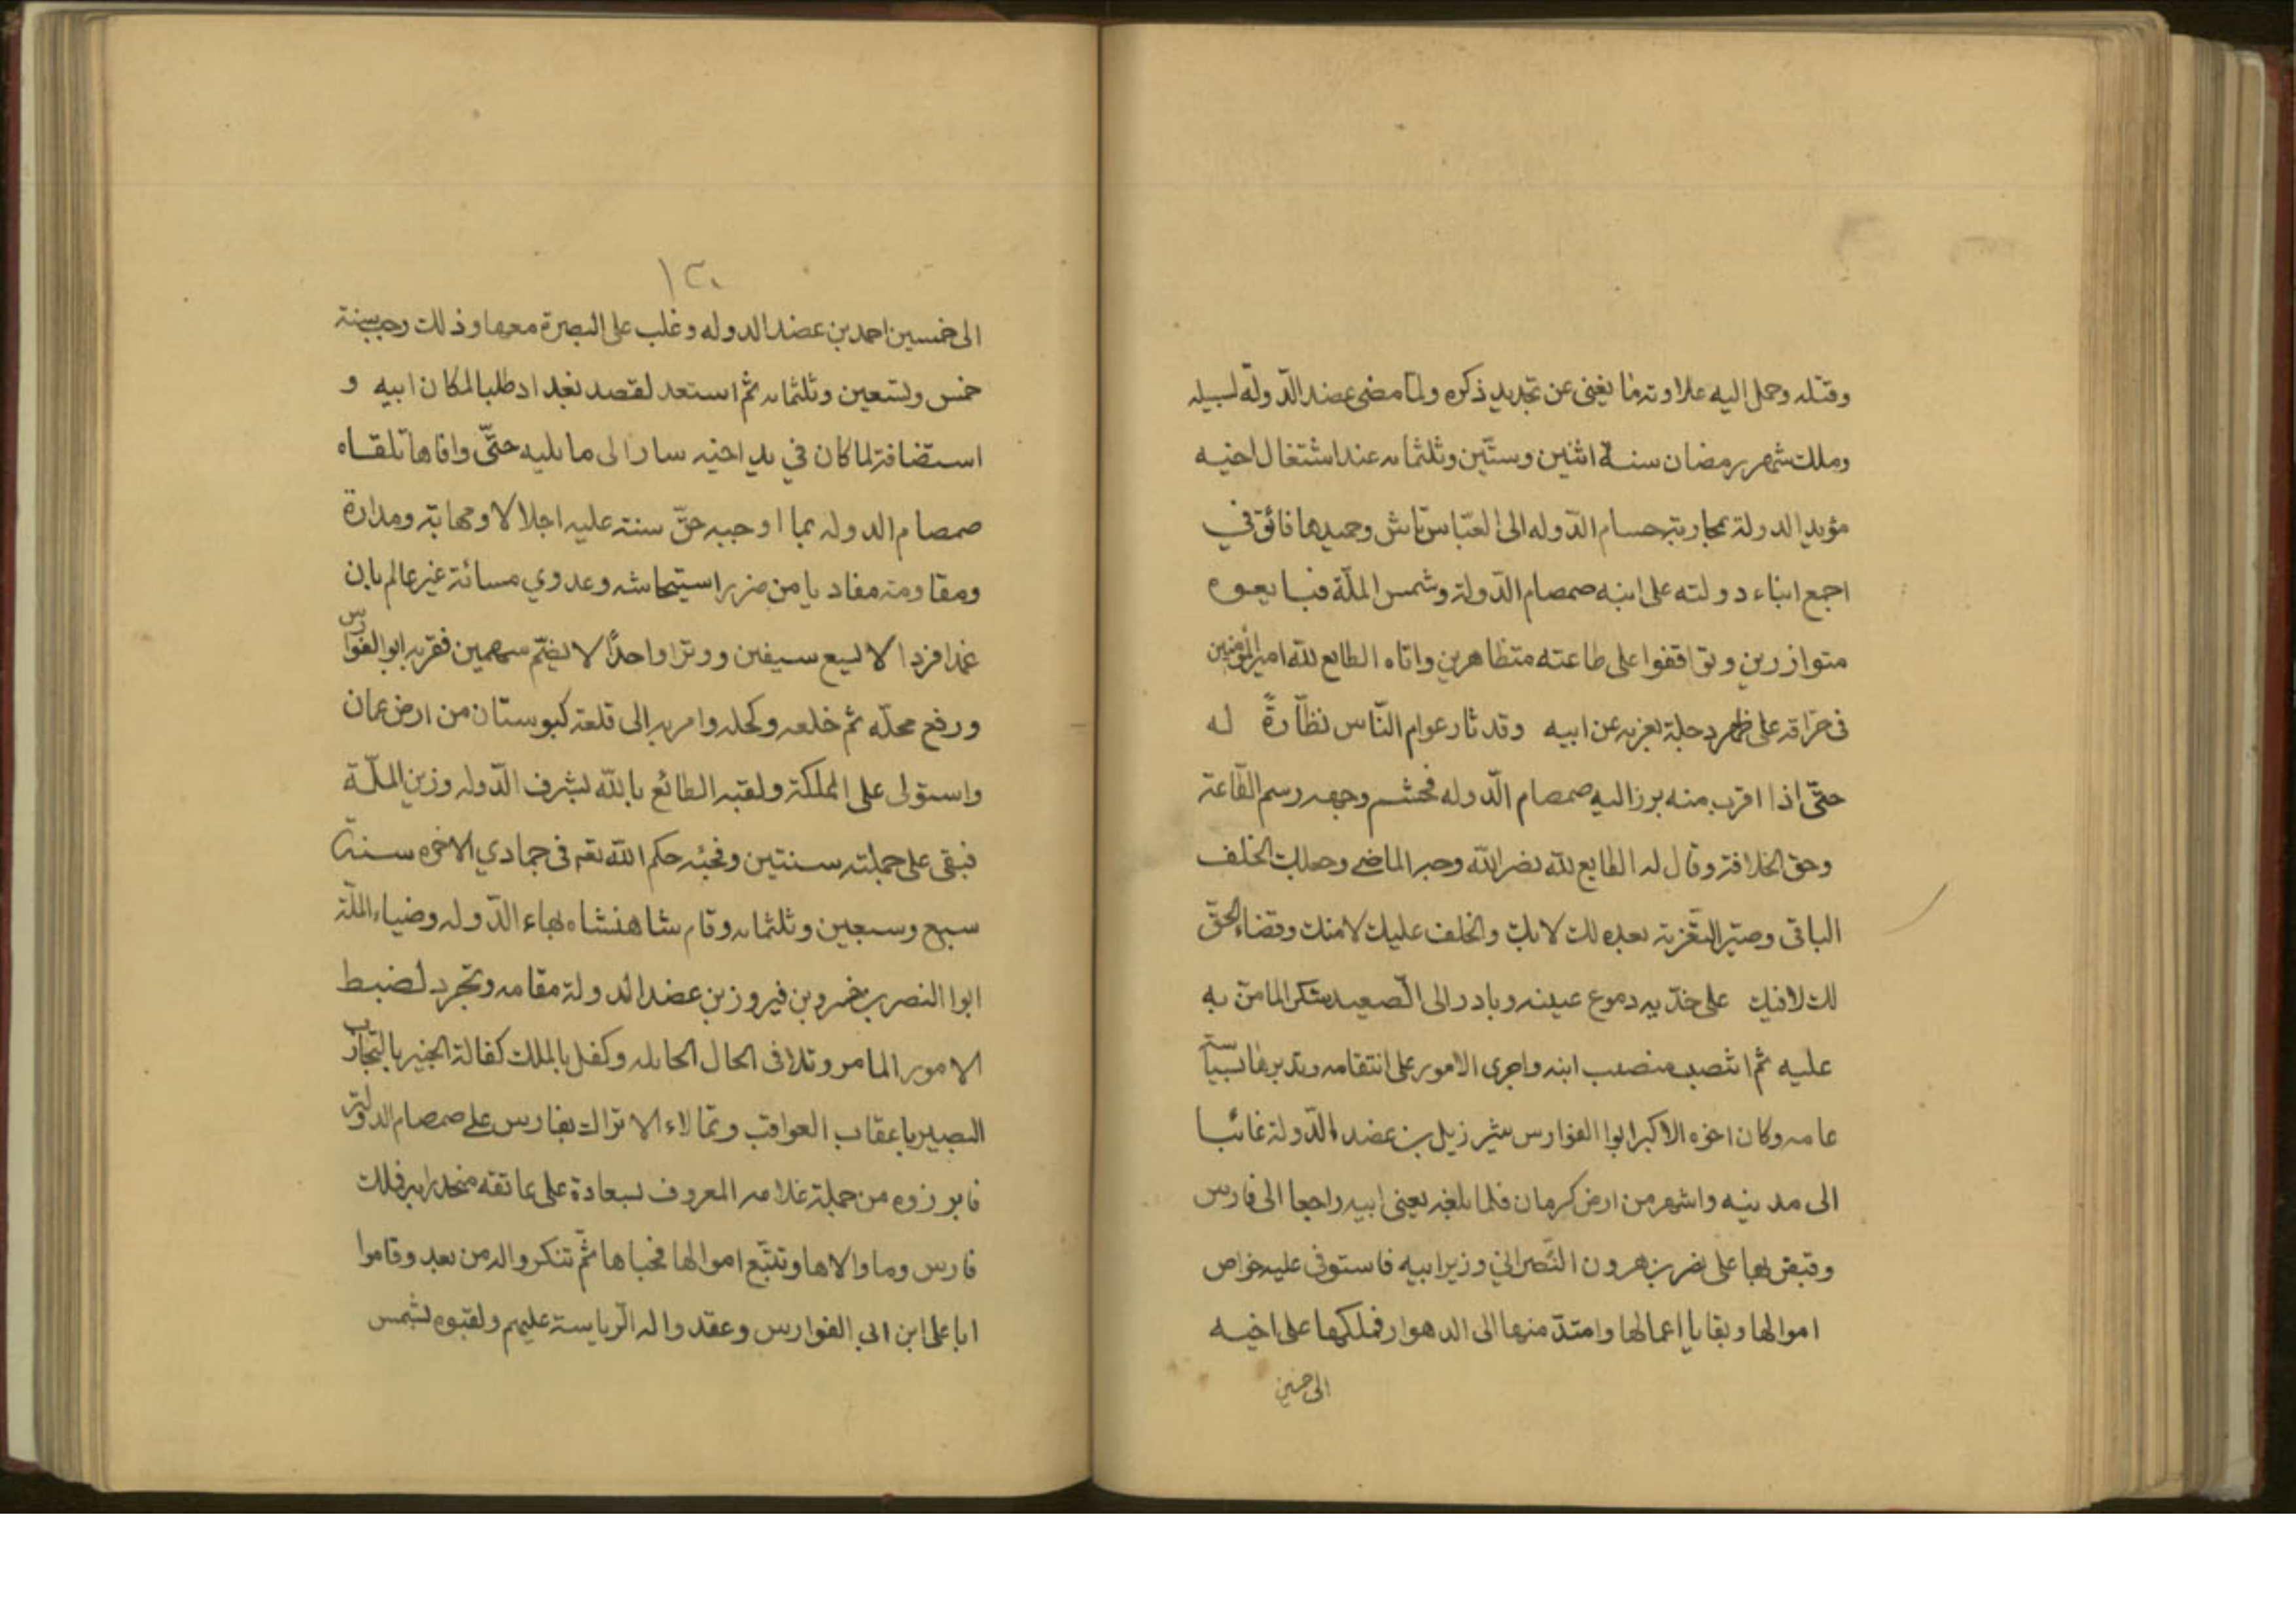 وقتله وحمل اليه علاوته ما يغنى عن تجديد ذكره ولما مضى عضد الدّولة لسبيله
وملك شهر رمضان سنة اثنين وستّين وثلثمايه عند اشتغال اخيه
مؤيد الدولة بمحاربة حسام الدّوله الى العبّاس تاش وحميدها فائق في
اجمع ابناء دولته على ابنه صمصام الدّولة وشمس الملّة فبايعوه
متوازرين وتواقفوا على طاعته متظاهرين واتاه الطايع لله امير المؤمنين
فى حرّاقه على ظهر دجلة بعزيه عن ابيه وقد ثار عوام النّاس نظّارةً له
حتّى اذا اقرب منه برز اليه صمصام الدّوله فحشم وجهه رسم الطّاعة
وحق الخلافة وقال له الطايع لله نضر الله وجه الماضى وجعلك الخلف
الباقى وصيّر التعّزية بعده لك لا بك والخلف عليك لا منك وقضاء الحقّ
لك لا فيك على خدّيه دموع عينه وبادر الى الصّعيد شكرا لما منّ به
عليه ثم انتصب منصب ابنه واجرى الامور على انتقامه وتدبرها سياسة
عامه وكان اخوه الاكبر ابوا الفوارس شير زيل بن عضد الدّولة غائبا
الى مدينه واشهر من ارض كرمان فلما بلغه يعنى ابيه راجعا الى فارس
وقبض بها على نصر بن هرون النّصرانيّ وزير ابيه فاستوفى عليه خواص
اموالها وبقايا اعمالها وامتدّ منها الى الدهواز فملكها على اخيه
الى حسين
١٣٠
الى خمسين احمد بن عضد الدوله وغلب على البصرة معها وذلك رجب سنة
خمس وتسعين وثلثمايه ثم استعد لقصد بغداد طلبا لمكان ابيه و
استضافة لما كان في يد اخيه سارا الى ما يليه حتّى وافاها تلقاه
صمصام الدوله بما اوجبه حقّ سنته عليه اجلالا ومهابة ومدارة
ومقاومته مفاديا من ضرر استيحاشه وعدوي مسائة غير عالم بان
غمدا فردا لا يسع سيفين ووترا واحداً لا يضمّ سهمين فقربه ابو الفوارس
ورفع محلّه ثم خلعه وكحله وامر به الى قلعة كبوستان من ارض عمان
واستولى على المملكة ولقبه الطائع بالله لشرف الدّوله وزين الملّة
فبقى على جملته سنتين وفجئه حكم الله تعه فى جمادي الاخره سنة
سبع وسبعين وثلثمايه وقام شاهنشاه بهاء الدّوله وضياء الملّة
ابوا النصر بن خسرو بن فيروز بن عضد الدولة مقامه وتجرد لضبط
الامور المامر وتلافى الحال الحايله وكفل بالملك كفالة الخبير بالتجارب
البصير باعقاب العواقب وتمالاء الاتراك بفارس على صمصام الدولة
فابرزوه من جملة غلامه المعروف لسعادة على عاتقه منحدرا به فملك
فارس وما والاها وتتبّع اموالها فجباها ثمّ تنكروا له من بعد وقاموا
ابا على ابن ابى الفوارس وعقدوا له الرّياسة عليهم ولقبوه لشمس